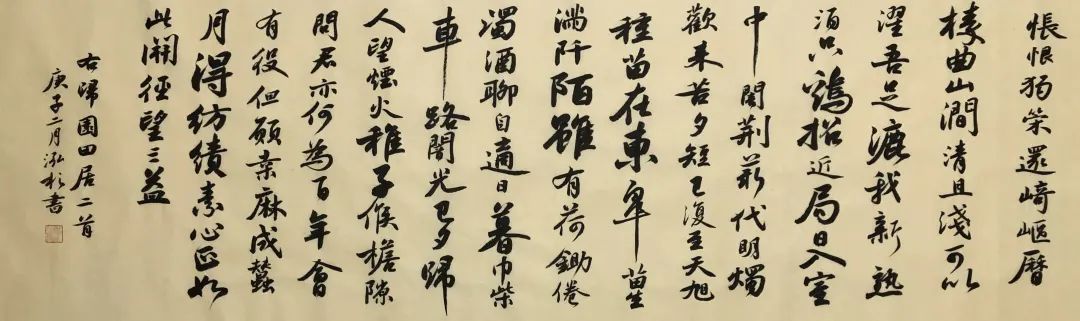 悵恨獨策還崎嶇曆
榛曲山澗清且淺可以
濯吾足漉我新熟
酒只鷄招近局日入室
中闇荆薪代明燭
歡来苦夕短已復至天旭
種苗在東皐苗生
滿阡陌雖有荷鋤倦
濁酒聊自適日暮巾柴
車路闇光已夕歸
人望煙火稚子候檐隙
問君亦何為百年會
有役但願桑麻成蠶
月得紡績素心正如
此開徑望三益
右歸園田居二首
庚子二月泓杉書